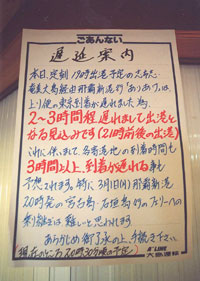 ごあんない
遅延案内
本日、定刻19時出港予定の
奄美大島経由那覇新港行「ありあけ」は、
上り便の東京到着が遅れました為、
2〜3時間程 遅れまして出港と
なる見込みです(21時前後の出港)
これに伴いまして、各寄港地の到着時間も
3時間以上、到着が遅れる事も
予想されます。特に3月1日(月)那覇新港
20時発の宮古島・石垣島行のフェリーへの
乗り継ぎは難しいと思われます
あらかじめ御了承の上、手続き下さい
現在のところ20時30分頃の予定
A"LINE
大島運輸